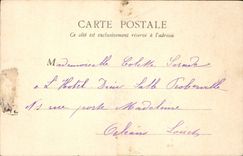 CARTE POSTALE
Ce côté est exclusivement réservé à l'adresse
Mademoiselle Colette
a L'Hotel Dieu Salle
rue porte Madeleine
Orléans Loiret